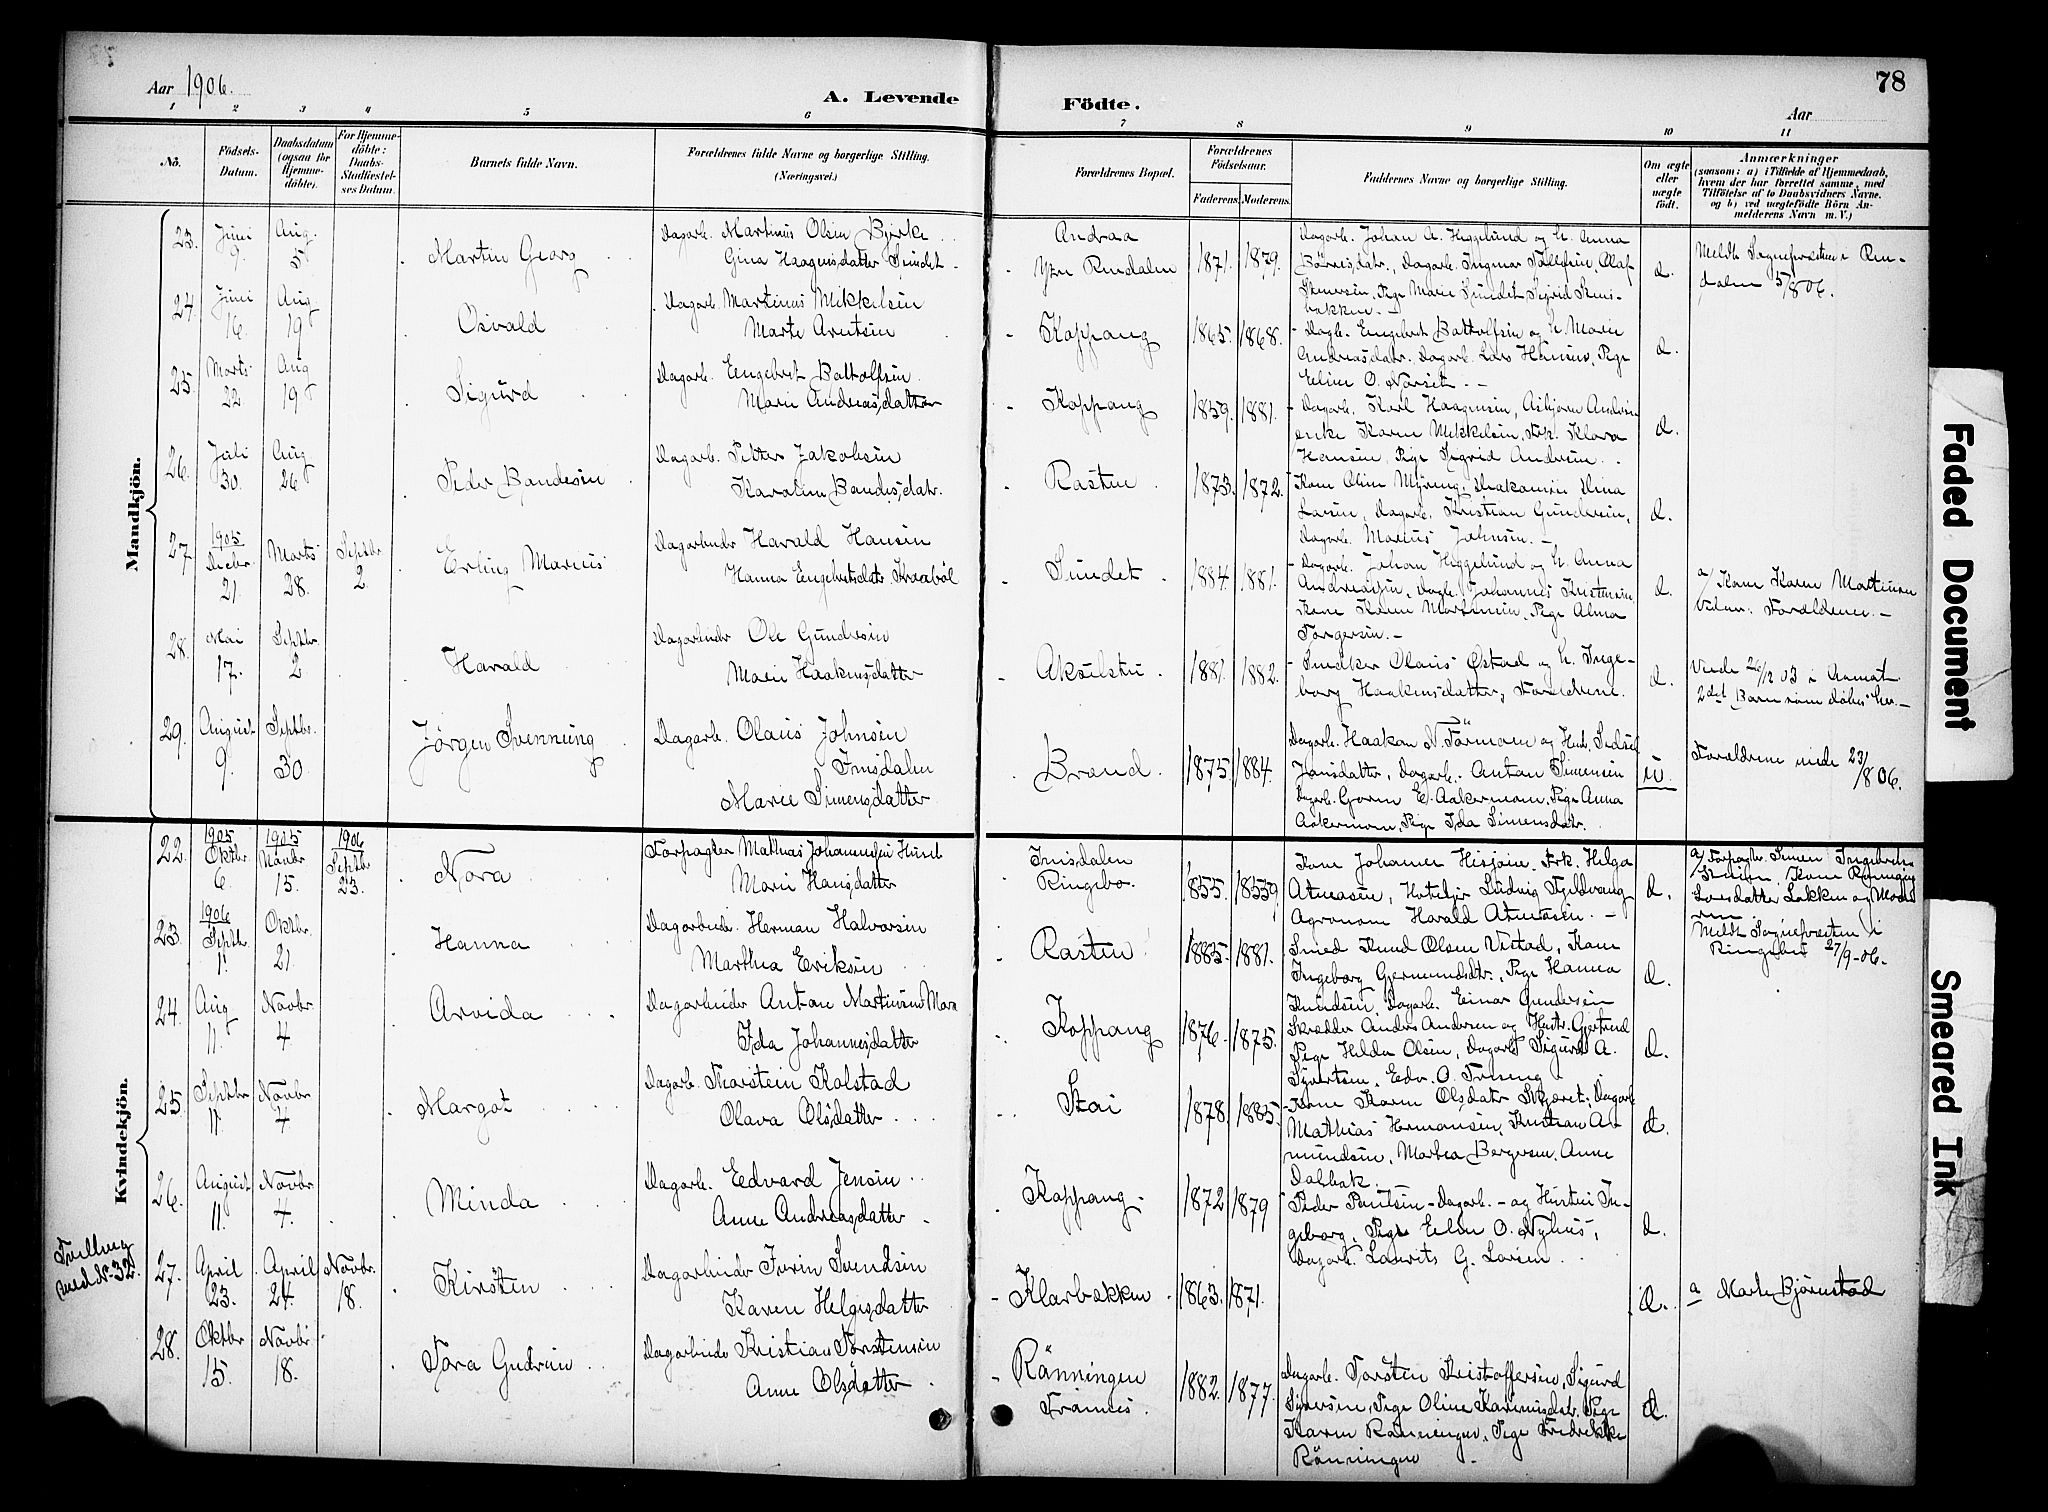 78
Aar 1906.
A. Levende Födte.
Aar
1 2 3 4 5 6 7 8 9 10 11
No.
Födsels-
Datum.
Daabsdatum
(ogsaa for
Hjemme-
döbte).
For Hjemme-
döbte:
Daabs-
Stadfæstel-
ses Datum.
Barnets fulde Navn.
Forældrenes fulde Navne og borgerlige Stilling.
(Næringsvei.)
Forældrenes Bopæl.
Forældrenes
Födselsaar.
Faderens. Moderens.
Faddernes Navne og borgerlige Stilling.
Om ægte
eller
uægte
födt.
Anmærkninger
(saasom: a) i Tilfælde af Hjemmedaab,
hvem der har forrettet samme, med
Tilföielse af to Daabsvidners Navne,
og b) ved uægtefödte Börn An-
melderens Navn m. V.)
Mandkjön.
23. Juni 9. Aug. 5
Martin Georg
Dagarb. Martinus Olsen Bjerke
Gina Haagensdatter Sundet
Andraa
Ytre Rendalen
1871. 1879.
Dagarb. Johan A. Heggelund og h. Anna
Børresdatr., Dagarb. Ingmar Tollefsen, Olaf
Stenersen, Pige Marie Sundet, Sigrid Stens-
bakken. –
Meldt Sognepresten i Ren-
dalen 5/8 06.
24. Juni 16 Aug 19
Osvald
Dagarb. Martinus Mikkelsen
Marte Arntsen
Koppang
1865. 1868.
Dagb. Engebret Battolfsen og h. Marie
Andreasdatr. Dagarb. Lars Hansen, Pige
Eline O. Norset. –
25. Marts 22 Aug 19
Sigurd
Dagarb. Engebret Battolfsen
Marie Andreasdatter
Koppang
1859. 1881.
Dagarb. Karl Haagensen, Asbjørn Andersen
enke Karen Mikkelsen, Frk. Klara
Hansen, Pige Sigrid Andersen.
26. Juli 30. Aug. 26
Peder Bandesen
Dagarb. Petter Jakobsen
Karoline Bandesdatr.
Rasten
1873. 1872.
Kone Oline Myreng,
Larsen, Dagarb. Kristian Gundersen,
Dagarb. Marius Johnsen. –
27. 1905 Decbr. 21. Marts 28. Septbr 2.
Erling Marius
Dagarbeider Harald Hansen
Hanna Engebretsdatr Kraabøl
Sundet
1884. 1881.
Dagarb. Johan Heggelund og h. Anna
Andreassen, Dagb. Johannes Kristensen,
Kone Karen Martinsen, Pige Alma
Torgersen. –
a/ Kone Karen Martinsen
Vidner: Forældrene. –
28. Mai 17. Septbr. 2
Harald
Dagarbeider Ole Gundersen
Marie Haakensdatter
Akselsten
1881. 1882.
Snedker Olaus Østad og h. Inge-
borg Haakensdatter, Forældrene.
Viede 26/12 03 i Aamot
2det Barn som døbes her. –
29. August 9. Septbr. 30.
Jørgen Svenning
Dagarb. Olaus Johnsen
Imsdalen
Marie Simensdatter
Brand.
1875. 1884.
Dagarb. Haakon N. Formoen og Hust. Sidsel
Jonsdatter, Dagarb. Anton Simensen
Dagarb. Gorm E. Aakermoen, Pige Anna
Aakermoen, Pige Ida Simensdatr.
u.
Forældrene viede 23/8 06.
Kvindekjön.
22. 1905 Oktbr. 6. 1905 Novbr 15. 1906 Septbr 23.
Nora
Forpagter Mathias Johannessen Hundt
Marie Hansdatter
Imsdalen
Ringebo.
1855. 1859
Kone Johanne Hisjøien, Frk. Helga
Atneosen, Hotelejer Ludvig Fjeldvang
Agronom Harald Atneosen. –
a/ Forpagter Simen Ingebretsen
Kone Rønnaug
Larsdatter Løkken og Mode-
ren
Meldt Sognepresten i
Ringebu 27/9-06.
23. 1906 Septbr. 1. Oktbr. 21.
Hanna
Dagarbeid. Herman Halvorsen
Martha Eriksen
Rasten
1885. 1881.
Smed Knud Olsen Vestad, Kone
Ingeborg Gjermundsdtr., Pige Hanna
Knudsen, Dagarb. Einar Gundersen
24. Aug 11. Novbr. 4
Arvida
Dagarbeider Anton Martinsen Mora
Ida Johannesdatter
Koppang
1876. 1875.
Skrædder Anders Andersen og Hustr. Gjertrud
Pige Hilda Olsen, Dagarb Sigurd A.
Syvertsen, Edv. O. Treseng.
25. Septbr 11. Novbr 4
Margot
Dagarb. Thorstein Kolstad
Olava Olsdatter
Stai
1878. 1885.
Kone Karen Olsdatr Skjæret, Dagarb
Mathias Hermansen, Kristian As-
mundsen, Marthea Bergersen, Anne
Dalbak.
26. August 11. Novbr 4.
Minda
Dagarb. Edvard Jensen
Anne Andreasdatter
Koppang
1872 1879
Peder Paulsen – Dagarb. – og Hustru In-
geborg, Pige Eline O. Nyhus,
Dagarb. Laurits G. Larsen
Tvilling
med No 32.
27. April 23. April 24. Novbr. 18.
Kirsten
Dagarbeider Iverin Svendsen
Karen Helgesdatter
Klarbækken
1863. 1871.
a Marte Bjørnstad
28. Oktbr 15. Novbr 18.
Tora Gudrun
Dagarbeider Kristian Torstensen
Anne Olsdatter
Rönningen
Trønnes.
1882. 1877.
Dagarb. Torsten Kristoffersen, Sigurd
Syversen, Pige Oline Karenusdatr. Pige
Karen Rönningen, Pige Fredrikke
Rönningen
Faded Document
Smeared Ink